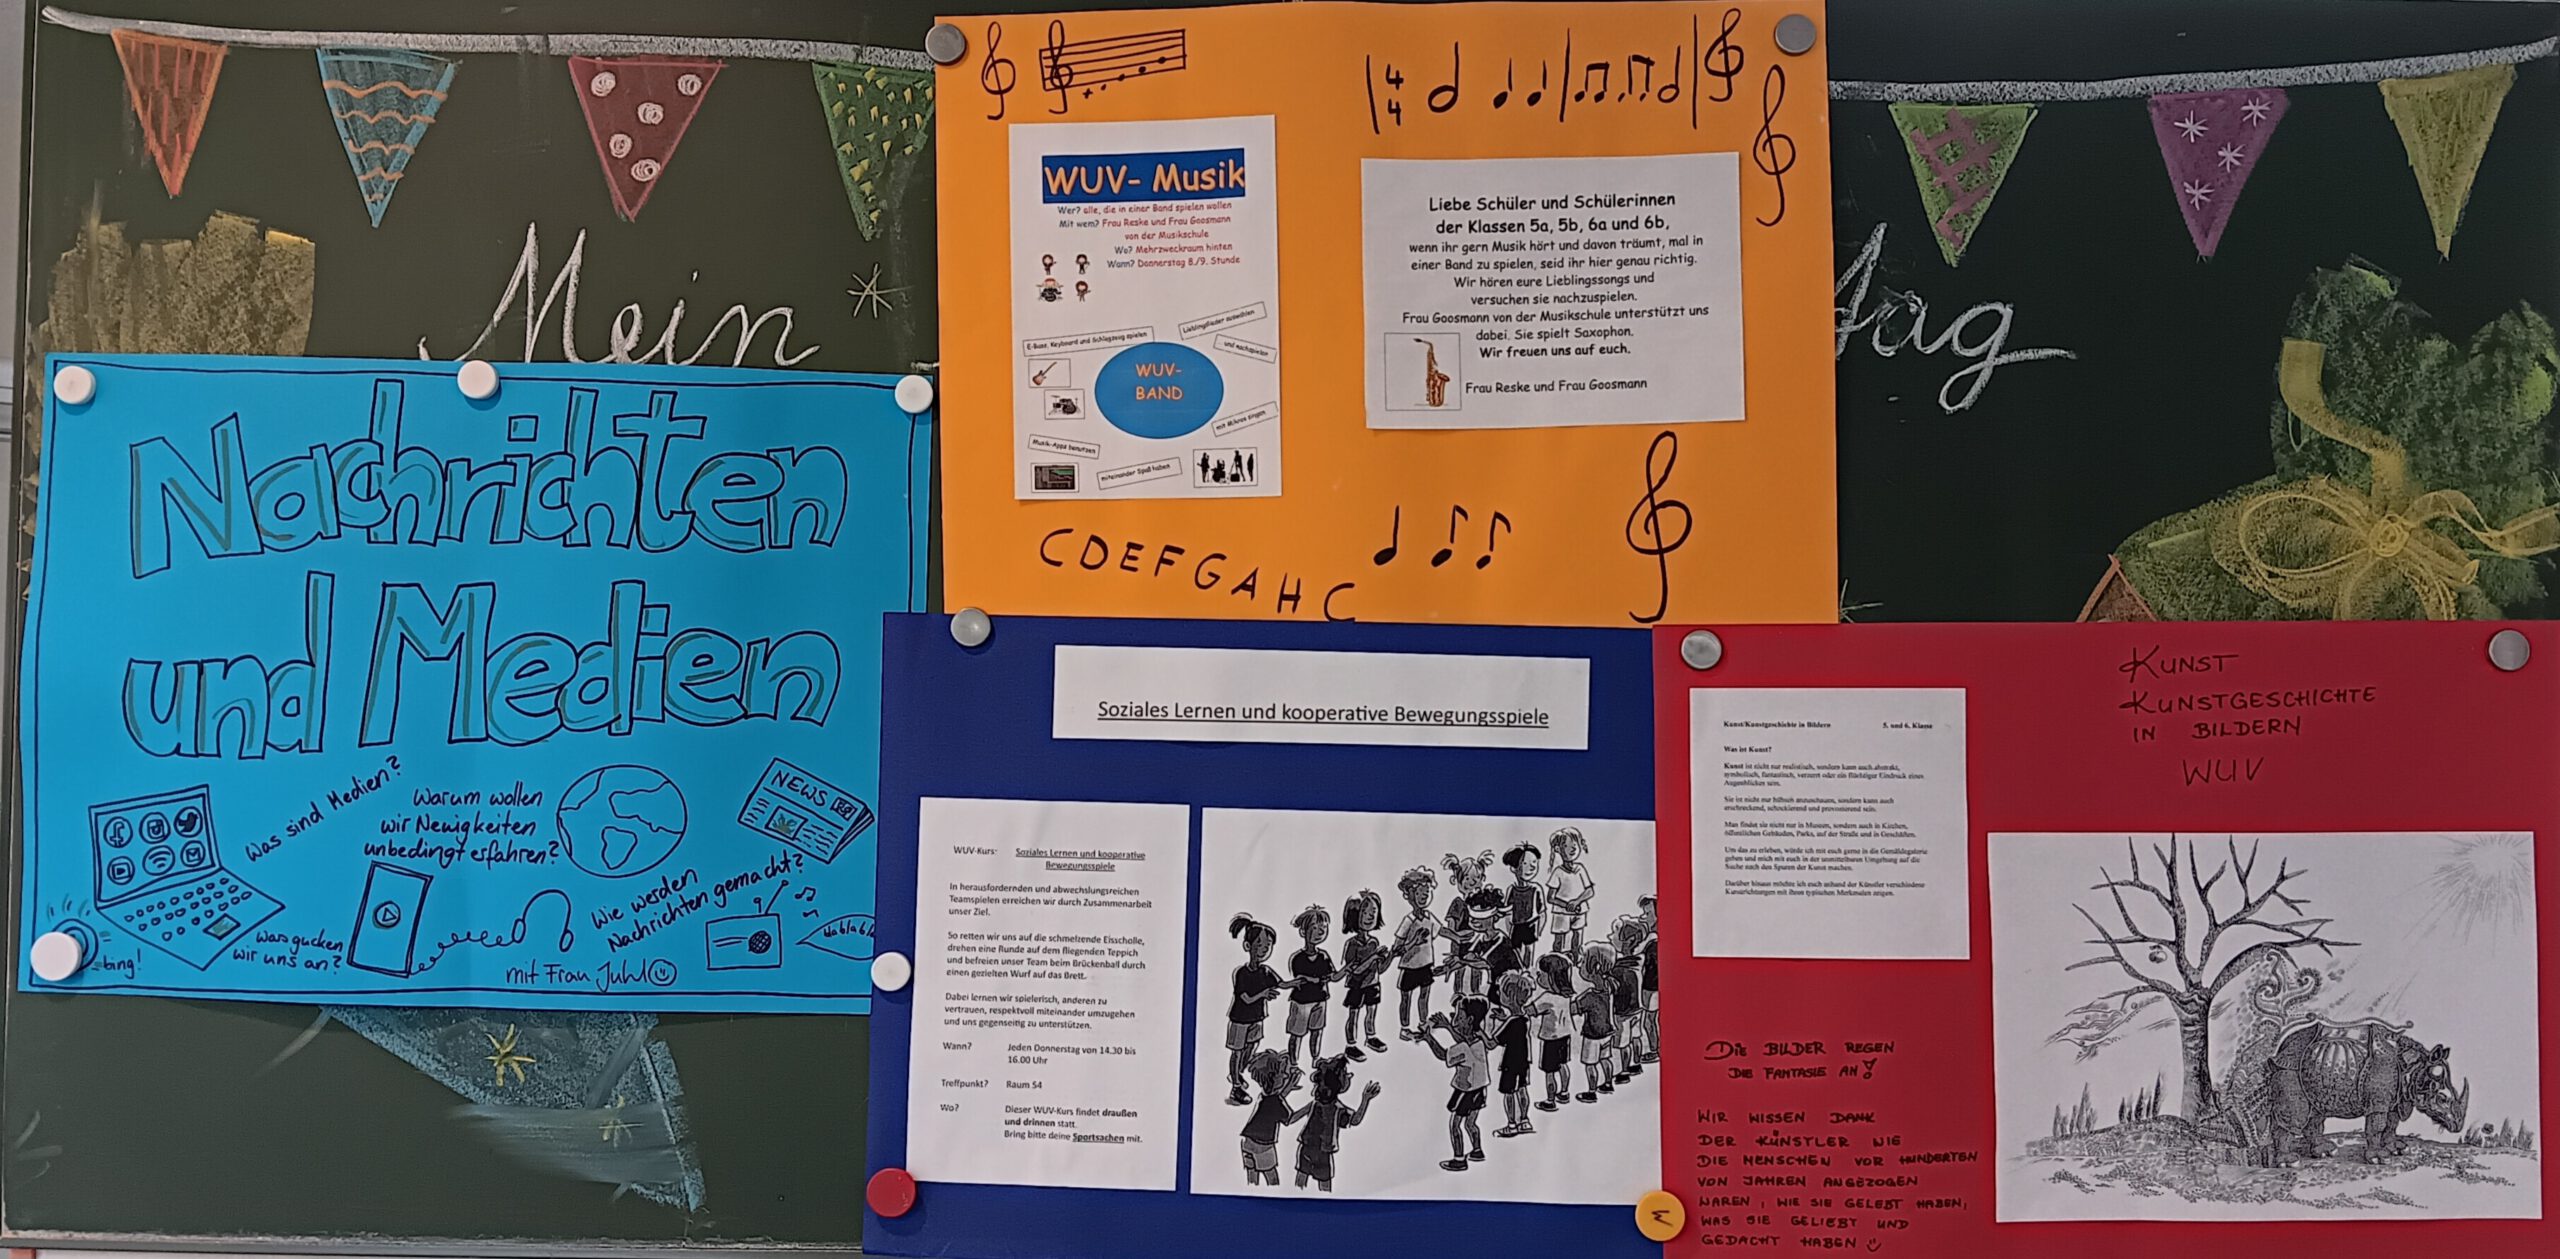 Mein
Tag
Nachrichten
und Medien
Was sind Medien?
Warum wollen
wir Neuigkeiten
unbedingt erfahren?
NEWS
Wie werden
Nachrichten gemacht?
was gucken
wir uns an?
bing!
blablabla
mit Frau Juhl
4
4
WUV- Musik
Wer? alle, die in einer Band spielen wollen
Mit wem? Frau Reske und Frau Goosmann
von der Musikschule
Wo? Mehrzweckraum hinten
Wann? Donnerstag 8./9. Stunde
E-Bass, Keyboard und Schlagzeug spielen
Lieblingslieder auswählen
und nachspielen
WUV-
BAND
mit Mikros singen
Musik-Apps benutzen
miteinander Spaß haben
Liebe Schüler und Schülerinnen
der Klassen 5a, 5b, 6a und 6b,
wenn ihr gern Musik hört und davon träumt, mal in
einer Band zu spielen, seid ihr hier genau richtig.
Wir hören eure Lieblingssongs und
versuchen sie nachzuspielen.
Frau Goosmann von der Musikschule unterstützt uns
dabei. Sie spielt Saxophon.
Wir freuen uns auf euch.
Frau Reske und Frau Goosmann
C D E F G A H C
Soziales Lernen und kooperative Bewegungsspiele
WUV-Kurs: Soziales Lernen und kooperative
Bewegungsspiele
In herausfordernden und abwechslungsreichen
Teamspielen erreichen wir durch Zusammenarbeit
unser Ziel.
So retten wir uns auf die schmelzende Eisscholle,
drehen eine Runde auf dem fliegenden Teppich
und befreien unser Team beim Brückenball durch
einen gezielten Wurf auf das Brett.
Dabei lernen wir spielerisch, anderen zu
vertrauen, respektvoll miteinander umzugehen
und uns gegenseitig zu unterstützen.
Wann? Jeden Donnerstag von 14.30 bis
16.00 Uhr
Treffpunkt? Raum 54
Wo? Dieser WUV-Kurs findet draußen
und drinnen statt.
Bring bitte deine Sportsachen mit.
KUNST
KUNSTGESCHICHTE
IN BILDERN
WUV
Kunst/Kunstgeschichte in Bildern 5. und 6. Klasse
Was ist Kunst?
Kunst ist nicht nur realistisch, sondern kann auch abstrakt,
symbolisch, fantastisch, verzerrt oder ein flüchtiger Eindruck eines
Augenblickes sein.
Sie ist nicht nur hübsch anzuschauen, sondern kann auch
erschreckend, schockierend und provozierend sein.
Man findet sie nicht nur in Museen, sondern auch in Kirchen,
öffentlichen Gebäuden, Parks, auf der Straße und in Geschäften.
Um das zu erleben, würde ich mit euch gerne in die Gemäldegalerie
gehen und mich mit euch in der unmittelbaren Umgebung auf die
Suche nach den Spuren der Kunst machen.
Darüber hinaus möchte ich euch anhand der Künstler verschiedene
Kunstrichtungen mit ihren typischen Merkmalen zeigen.
DIE BILDER REGEN
DIE FANTASIE AN!
WIR WISSEN DANK
DER KÜNSTLER WIE
DIE MENSCHEN VOR HUNDERTEN
VON JAHREN ANGEZOGEN
WAREN, WIE SIE GELEBT HABEN,
WAS SIE GELIEBT UND
GEDACHT HABEN